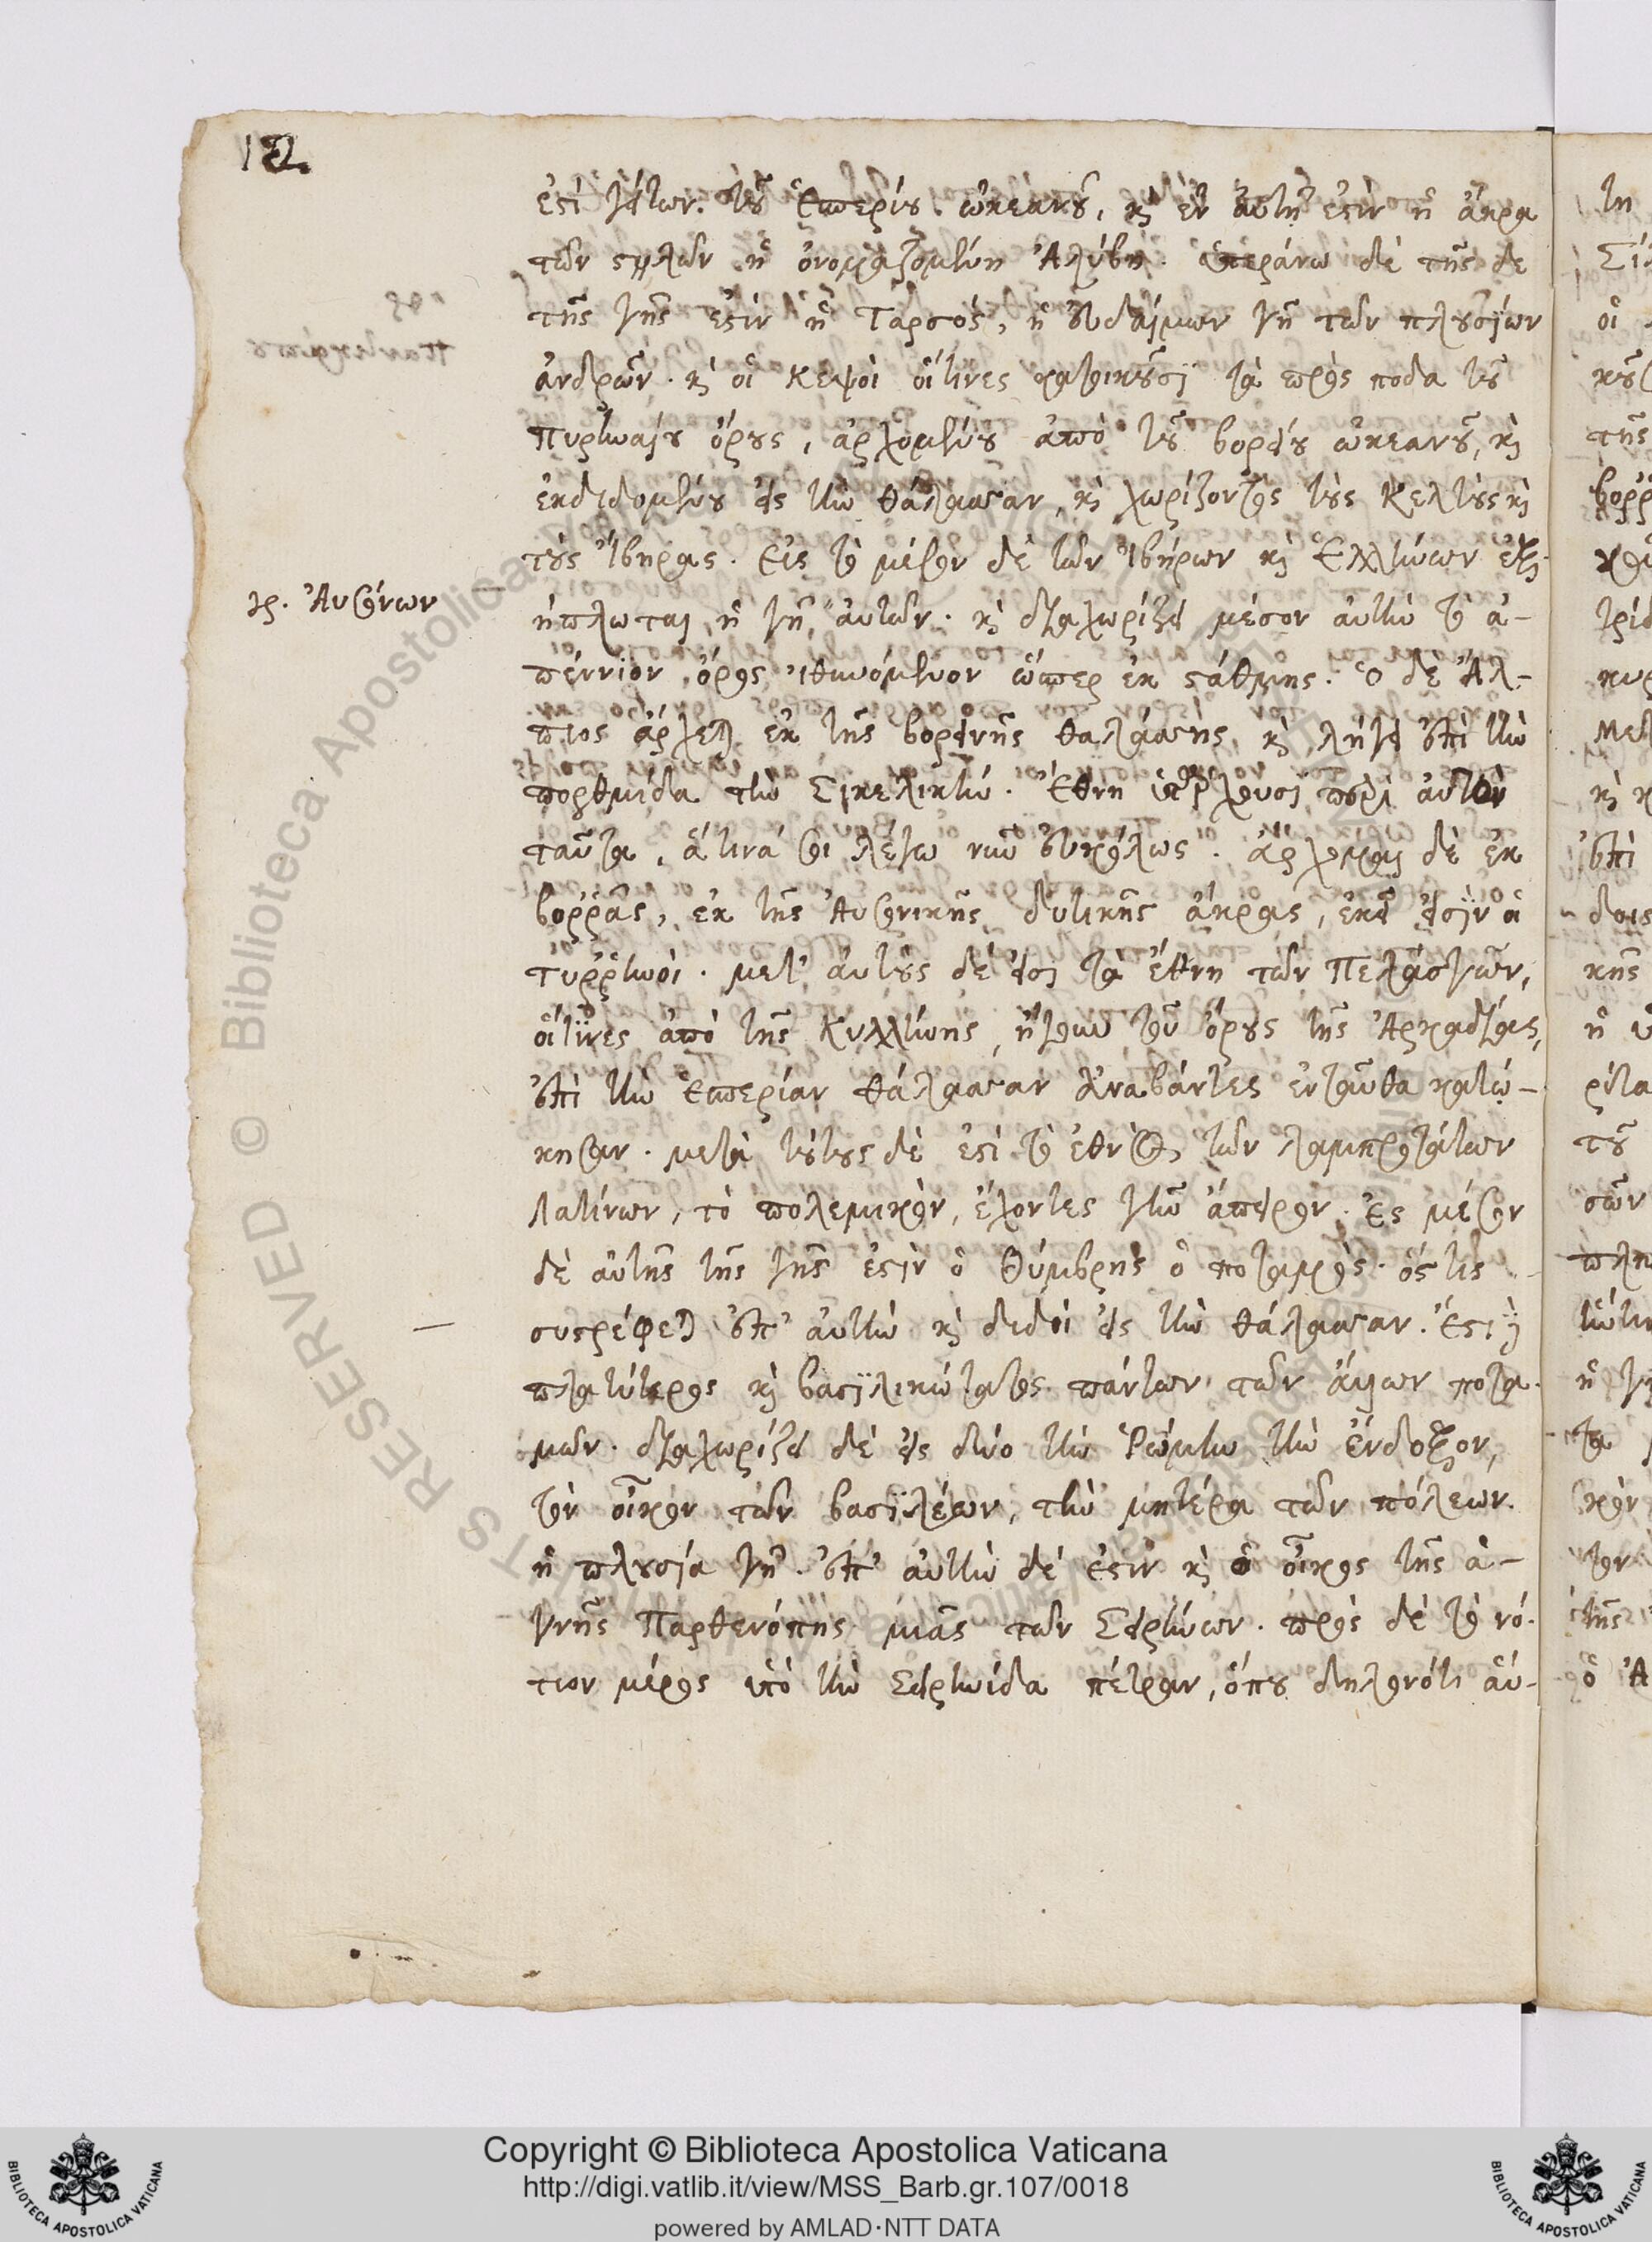 12
ἐστὶ γείτων τοῦ ἑσπερίου ὠκεανοῦ, καὶ ἐν αὐτῇ ἐστὶν ἡ ἄκρα
τῶν στηλῶν ἡ ὀνομαζομένη Ἀλύβη. ὑπεράνω δὲ τῆς δε
τῆς γῆς ἐστὶν ἡ Ταρσός, ἡ εὐδαίμων γῆ τῶν πλουσίων
ἀνδρῶν. καὶ οἱ Κεμψοὶ οἵτινες κατοικοῦσι τὰ πρὸς ποδα τοῦ
Πυρηναίου ὄρους, ἀρχομένου ἀπὸ τοῦ βορείου ὠκεανοῦ, καὶ
ἐκδιδομένου εἰς τὴν θάλασσαν, καὶ χωρίζοντος τοὺς Κελτοὺς καὶ
τοὺς Ἴβηρας. Εἰς τὸ μέσον δὲ τῶν Ἰβήρων καὶ Ἑλλήνων ἐξ-
κς. Αὐσόνων
ήπλωται ἡ γῆ αὐτῶν. καὶ διαχωρίζει μέσον αὐτὴν τὸ ἀ-
πέννιον ὄρος ἰθυνόμενον ὥσπερ ἐκ στάθμης. Ὁ δε Ἄλ-
πιος ἄρχεται ἐκ τῆς βορεινῆς θαλάσσης, καὶ λήγει ἐπὶ τὴν
πορθμίδα τὴν Σικελικήν. Ἔθνη ὑπάρχουσι περὶ αὐτὸν
ταῦτα, ἅτινά σοι λέγω νῦν εὐκόλως. ἄρχομαι δὲ ἐκ
βορρᾶς, ἐκ τῆς Αὐσονικῆς δυτικῆς ἄκρας, ἐκεῖ εἰσὶν οἱ
τυρρηνοί. μετ' αὐτοὺς δέ εἰσι τὰ ἔθνη τῶν Πελασγῶν,
οἵτινες ἀπὸ τῆς Κυλλήνης, ἤγουν τοῦ ὄρους τῆς Ἀρκαδίας,
ἐπὶ τὴν ἑσπερίαν θάλασσαν ἀναβάντες ἐνταῦθα κατώ-
κησαν. μετὰ τούτους δὲ ἐστὶ τὸ ἔθνος τῶν λαμπροτάτων
Λατίνων, τὸ πολεμικόν, ἔχοντες γῆν ἄπειρον. Εἰς μέσον
δὲ αὐτῆς τῆς γῆς ἐστὶν ὁ Θύμβρης ὁ ποταμὸς. ὅστις
συστρέφεται ἐπ' αὐτὴν καὶ διδοῖ εἰς τὴν θάλασσαν. Ἔστι δὲ
πλατύτερος καὶ βασιλικώτατος πάντων τῶν ἄλλων ποτα-
μῶν. διαχωρίζει δὲ εἰς δύο τὴν Ῥώμην τὴν ἔνδοξον,
τὸν οἶκον τῶν βασιλέων, τὴν μητέρα τῶν πόλεων.
ἡ πλουσία γῆ. ἐπ' αὐτὴν δέ ἐστιν καὶ ὁ οἶκος τῆς ἁ-
γνῆς Παρθενόπης μιᾶς τῶν Σειρήνων. πρὸς δὲ τὸ νό-
τιον μέρος ὑπὸ τὴν Σειρηνίδα πέτραν, ὅπου δηλονότι αὐ-
Copyright © Biblioteca Apostolica Vaticana
http://digi.vatlib.it/view/MSS_Barb.gr.107/0018
powered by AMLAD·NTT DATA